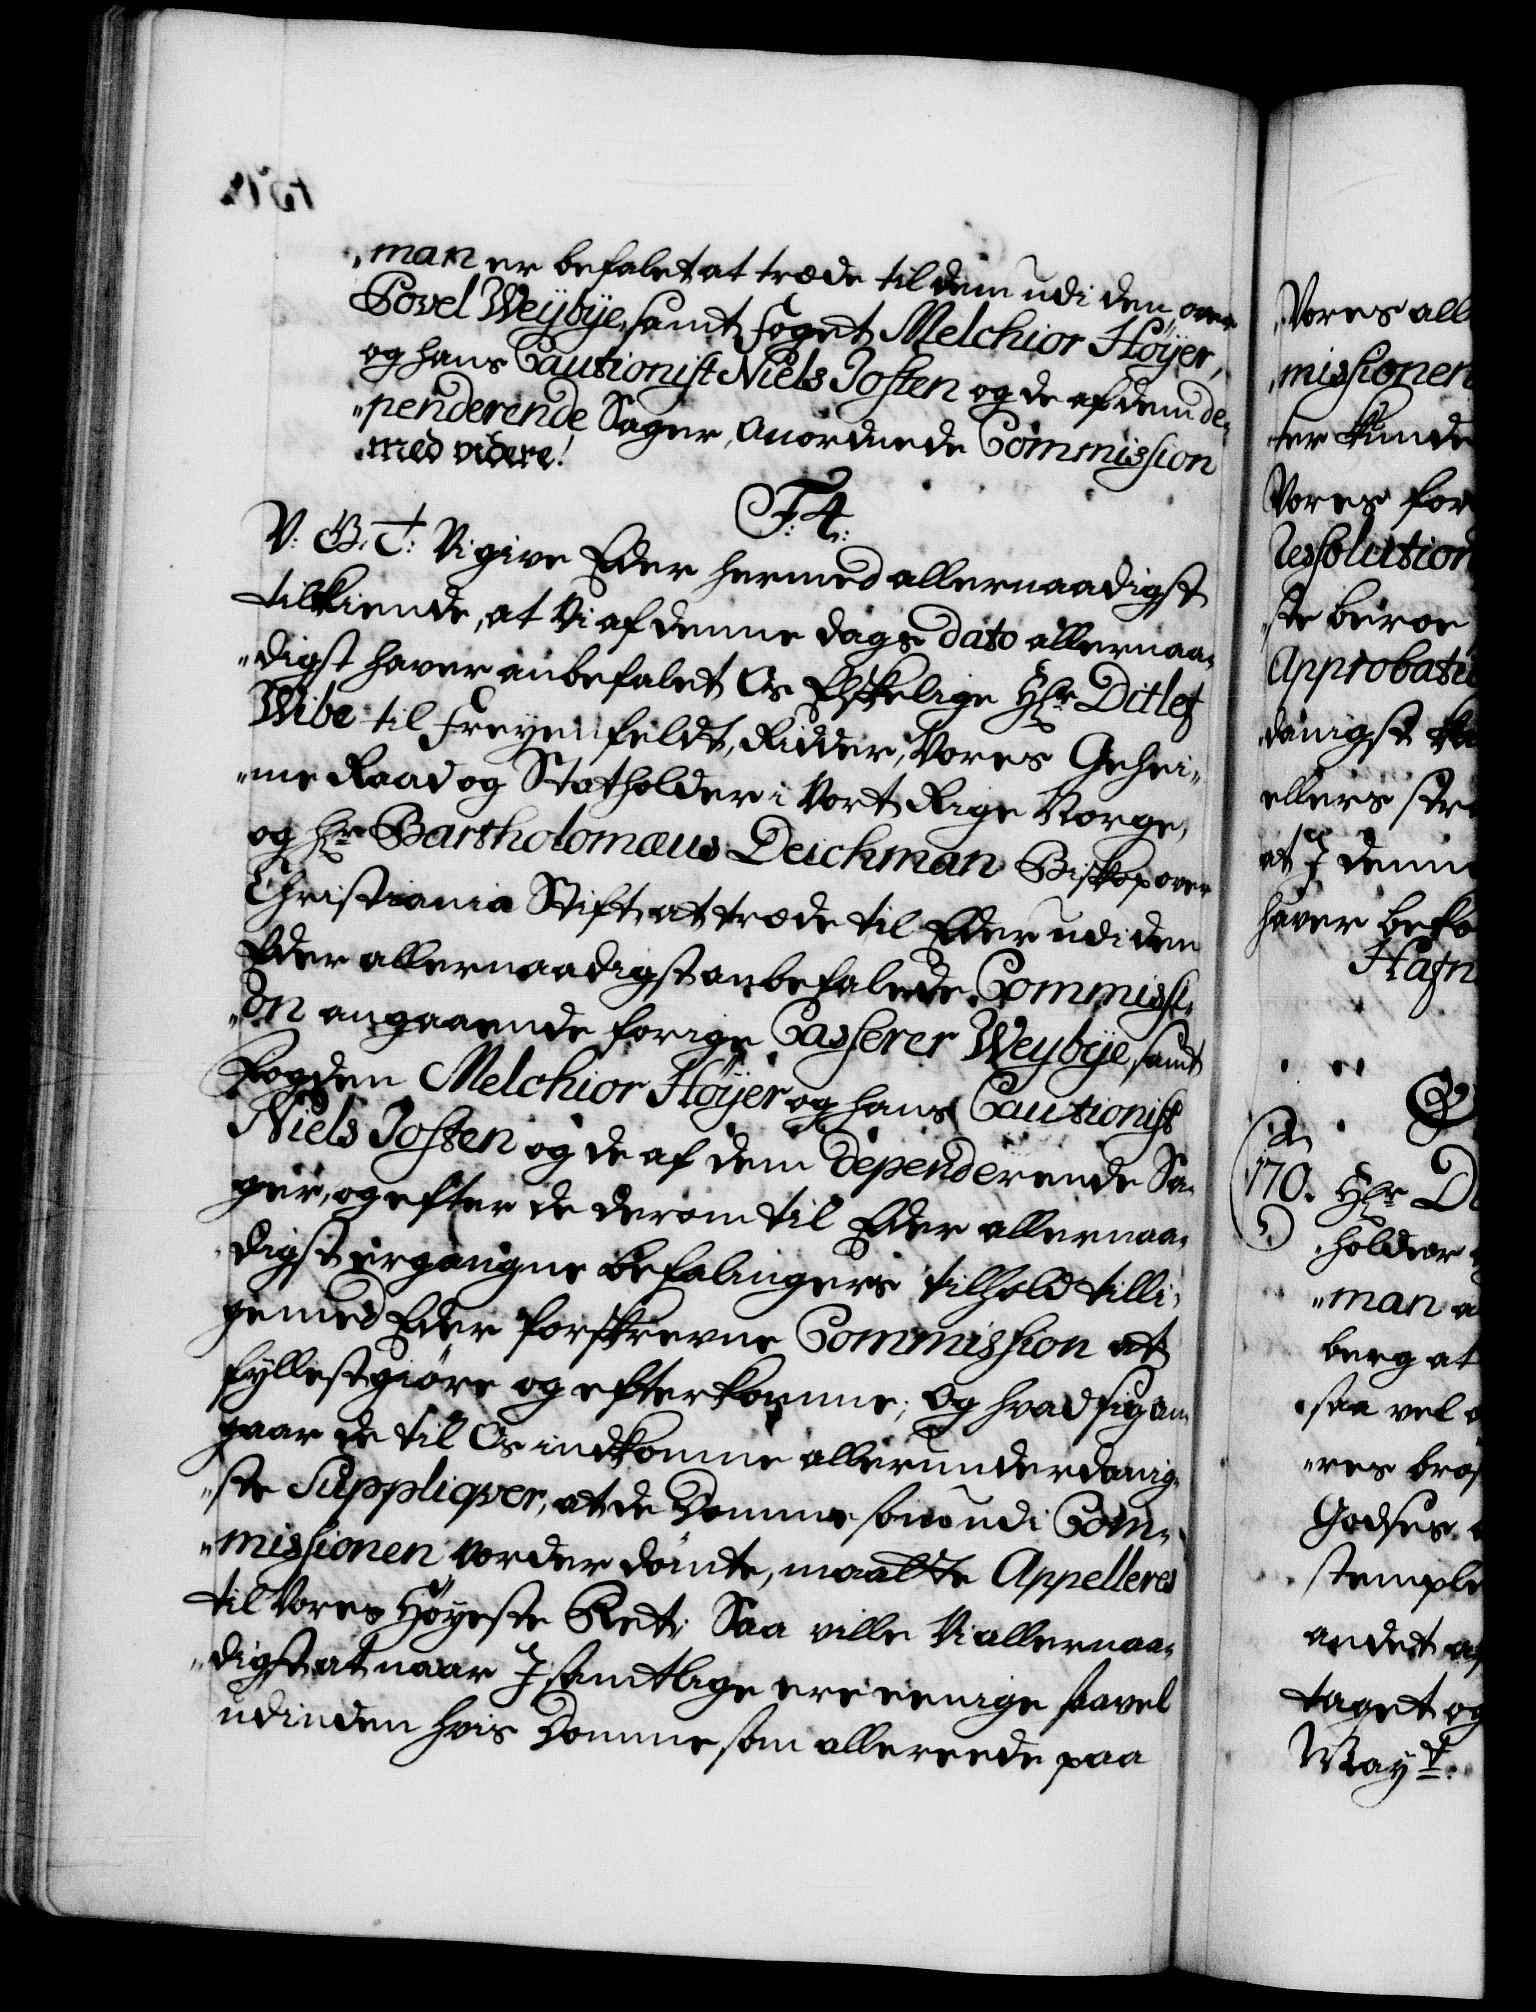 „man er befalet at træde til dem udi den over
Povel Weybye, samt foget Melchior Höyer,
og hans Cautionist Niels Josten og de af dem de„
„penderende Sager, anordnede Commission
med videre!
F: 4:
V: G. T: Vi give Eder hermed allernaadigst
tilkiende, at Vi af denne dags dato allernaa„
„digst haver anbefalet Os Elskelige Hr Ditlef
Wibe til Freyenfeldt, Ridder, Vores Gehei„
„me Raad og Statholder i Vort Rige Norge,
og Hr Bartholomæus Deichman Biskop over
Christiania Stift, at træde til Eder udi den
Eder allernaadigst anbefalede Commissi„
„on angaaende forige Casserer Weybye, samt
Fogden Melchior Höyer og hans Cautionist
Niels Josten og de af dem dependerende Sa„
ger, og efter de derom til Eder allernaa„
digst ergangne befalingers tilhold tilli„
gemed Eder forskrevne Commission at
fyllestgiöre og efterkomme; Og hvad sig an„
gaar de til Os indkomne allerunderdanig„
„ste Suppliqver, at de Domme som udi Com„
„missionen vorder dömte, maatte Appelleres
til Vores Höyeste Ret; Saa ville Vi allernaa„
„digst, at naar I samtlige ere eenige saavel
udinden hvis Domme som allereede paa
„Vores all
„missionen
ter kunde
Vores for
Resolution
„ste beroe
Approbati
danigst
ellers
at I denne
haver beko
Hafn
170. Hr D
holder
„man a
berg at
saa vel
„res
Godses
stemple
andet af
taget og
May t.